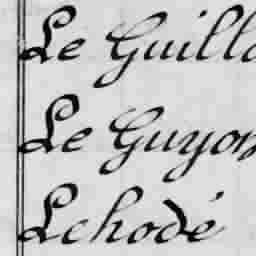 Le Guillo
Le Guyon
Lchodé